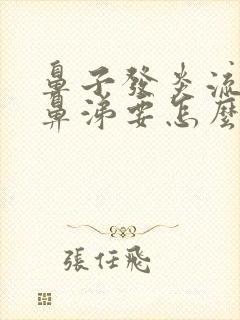 鼻子發炎流
鼻涕要怎麼
張任飛